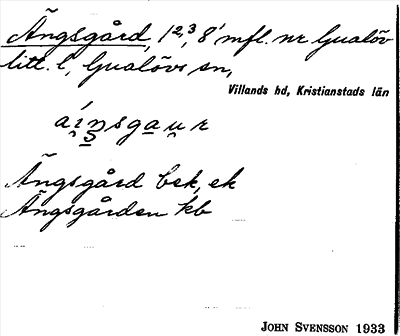 Ängsgård, 1²,³, 8¹ mfl. nr Gualöv
litt. l, Gualövs sn,
Villands hd, Kristianstads län
áínsgaur
Ängsgård bek, ek
Ängsgården kb
JOHN SVENSSON 1933